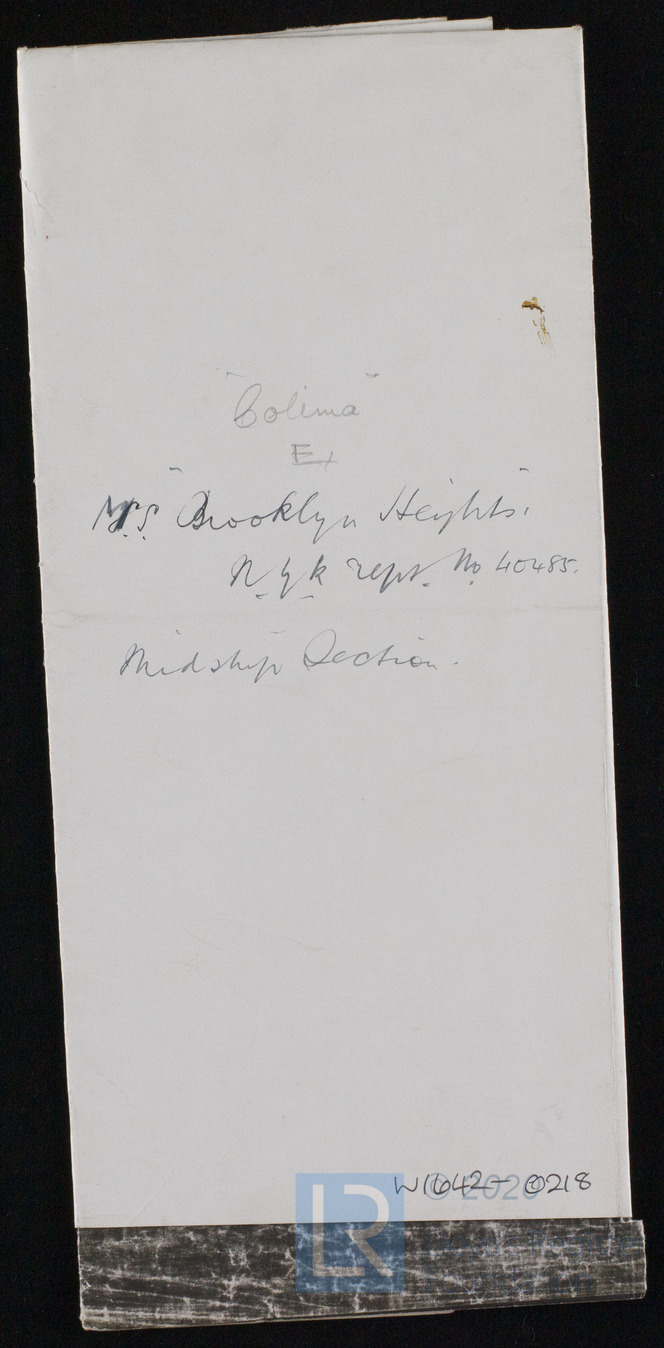 "Colima"
Ex
M.S. "Brooklyn Heights".
N.Y.K rept. No 40485.
Midship Section.
W1642-0218
LR
© 2020